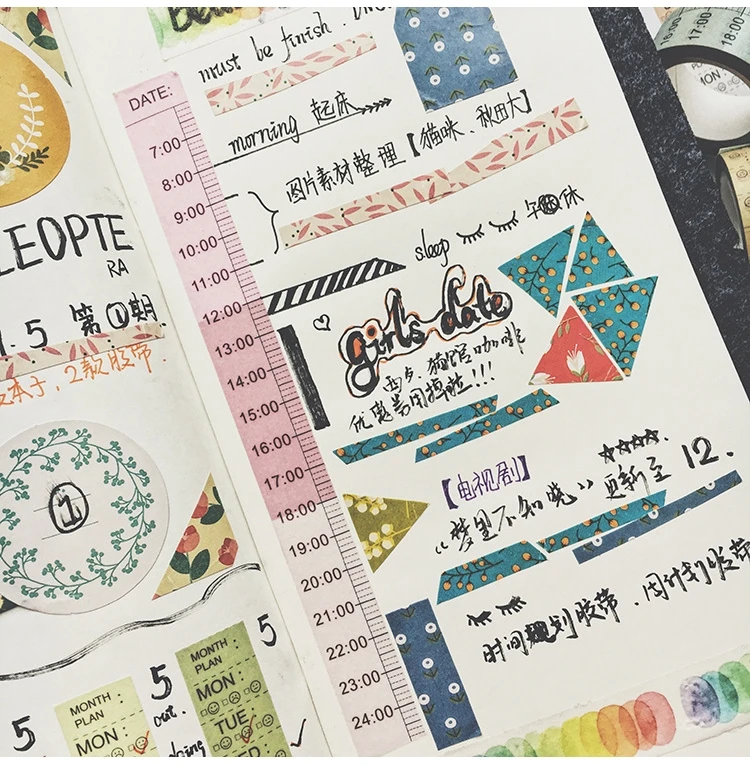 LEOPTE
RA
.5 第①期.
本子，2款胶带.
1
5
5
5
MONTH PLAN :
MON :
MONTH PLAN :
MON :
TUE :
must be finish.
DATE:
7:00
8:00
9:00
10:00
11:00
12:00
13:00
14:00
15:00
16:00
17:00
18:00
19:00
20:00
21:00
22:00
23:00
24:00
morning 起床
图片素材整理【猫咪、秋田犬】
sleep 午休
girl's date
猫馆咖啡
优惠券用掉啦!!!
【电视剧】
《梦里不知晓》更新至 12.
时间规划胶带.
16:00
17:00
18:00
MON :